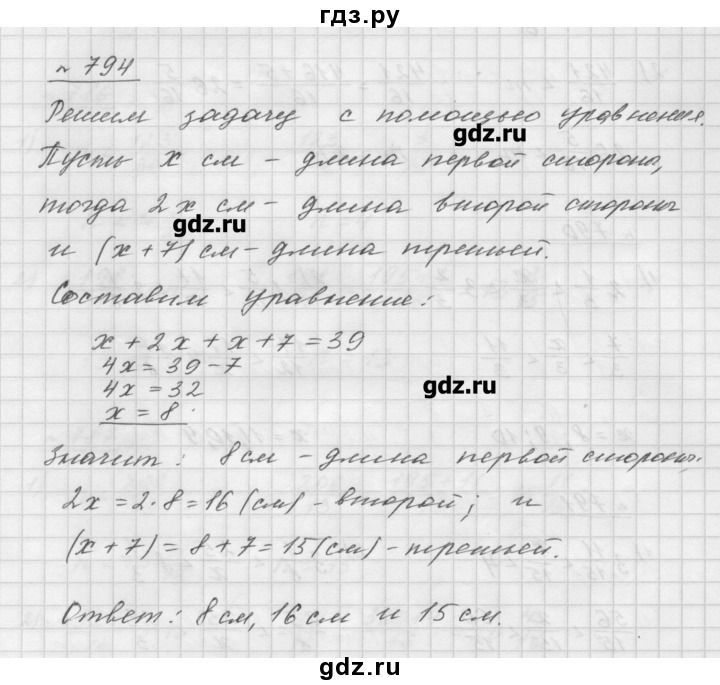 гдз.ру
№ 794
Решим задачу с помощью уравнения.
gdz.ru
Пусть x см - длина первой стороны,
тогда 2x см - длина второй стороны
gdz.ru
и (x+7) см - длина третьей.
Составим уравнение:
x + 2x + x + 7 = 39
4x = 39 - 7
4x = 32
gdz.ru
x = 8
Значит: 8 см - длина первой стороны;
2x = 2·8 = 16 (см) - второй; и
(x + 7) = 8 + 7 = 15 (см) - третьей.
Ответ: 8 см, 16 см и 15 см.
gdz.ru